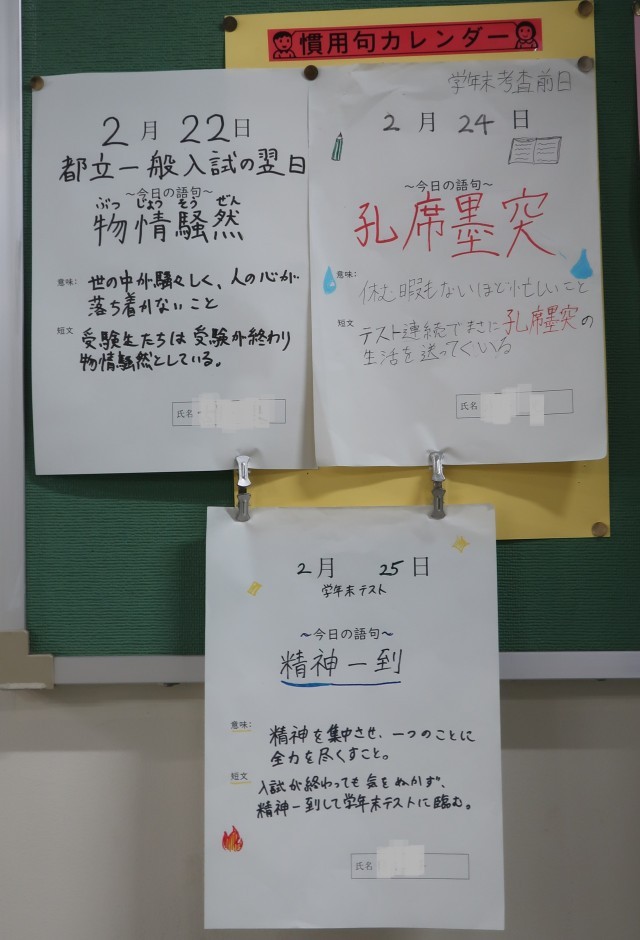 慣用句カレンダー
2月22日
都立一般入試の翌日
～今日の語句～
ぶつ じょう そう ぜん
物情騒然
意味：
世の中が騒々しく、人の心が
落ち着かないこと
短文
受験生たちは受験が終わり
物情騒然としている。
氏名
学年末考査前日
2月24日
～今日の語句～
孔席墨突
意味：
休む暇もないほど忙しいこと
短文
テスト連続でまさに孔席墨突の
生活を送ってくいる
氏名
2月 25日
学年末テスト
～今日の語句～
精神一到
意味：
精神を集中させ、一つのことに
全力を尽くすこと。
短文
入試が終わっても気をぬかず、
精神一到して学年末テストに臨む。
氏名